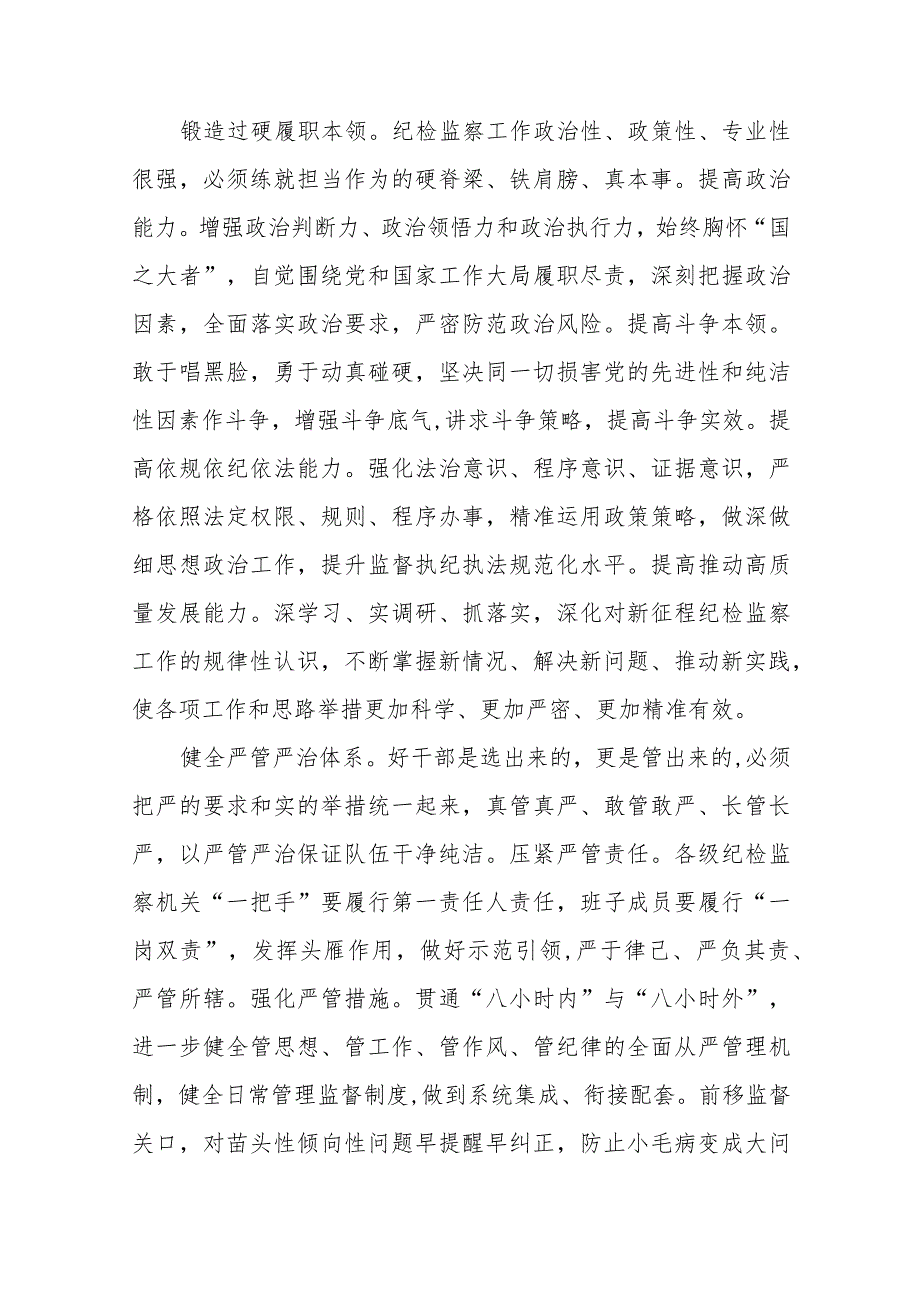 锻造过硬履职本领。纪检监察工作政治性、政策性、专业性
很强，必须练就担当作为的硬脊梁、铁肩膀、真本事。提高政治
能力。增强政治判断力、政治领悟力和政治执行力，始终胸怀“国
之大者”，自觉围绕党和国家工作大局履职尽责，深刻把握政治
因素，全面落实政治要求，严密防范政治风险。提高斗争本领。
敢于唱黑脸，勇于动真碰硬，坚决同一切损害党的先进性和纯洁
性因素作斗争，增强斗争底气,讲求斗争策略，提高斗争实效。提
高依规依纪依法能力。强化法治意识、程序意识、证据意识，严
格依照法定权限、规则、程序办事，精准运用政策策略，做深做
细思想政治工作，提升监督执纪执法规范化水平。提高推动高质
量发展能力。深学习、实调研、抓落实，深化对新征程纪检监察
工作的规律性认识，不断掌握新情况、解决新问题、推动新实践，
使各项工作和思路举措更加科学、更加严密、更加精准有效。
健全严管严治体系。好干部是选出来的，更是管出来的,必须
把严的要求和实的举措统一起来，真管真严、敢管敢严、长管长
严，以严管严治保证队伍干净纯洁。压紧严管责任。各级纪检监
察机关“一把手”要履行第一责任人责任，班子成员要履行“一
岗双责”，发挥头雁作用，做好示范引领,严于律己、严负其责、
严管所辖。强化严管措施。贯通“八小时内”与“八小时外”，
进一步健全管思想、管工作、管作风、管纪律的全面从严管理机
制，健全日常管理监督制度,做到系统集成、衔接配套。前移监督
关口，对苗头性倾向性问题早提醒早纠正，防止小毛病变成大问